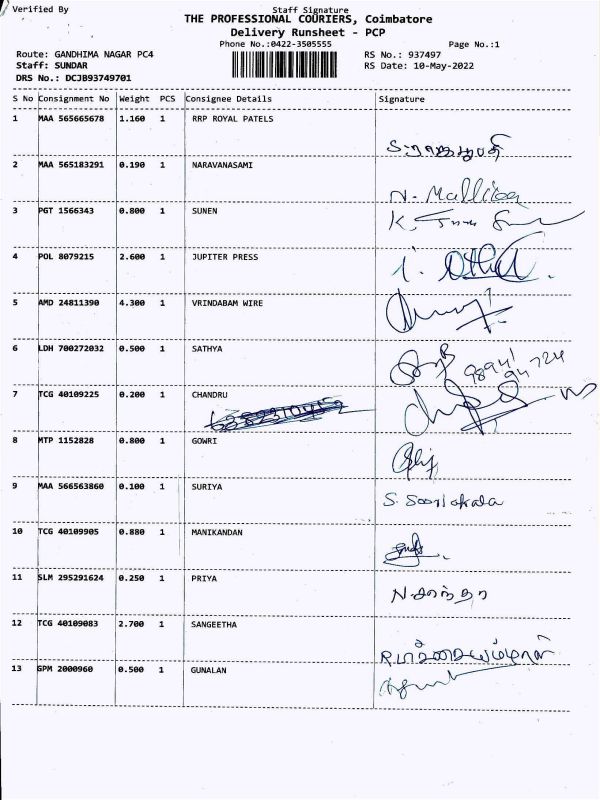 Verified By
Staff Signature
THE PROFESSIONAL COURIERS, Coimbatore
Delivery Runsheet - PCP
Phone No.:0422-3505555
Page No.:1
Route: GANDHIMA NAGAR PC4
RS No.: 937497
Staff: SUNDAR
RS Date: 10-May-2022
DRS No.: DCJB93749701
S No Consignment No Weight PCS Consignee Details Signature
1 MAA 565665678 1.160 1 RRP ROYAL PATELS
2 MAA 565183291 0.190 1 NARAVANASAMI
N. Mallika
3 PGT 1566343 0.800 1 SUNEN
K.
4 POL 8079215 2.600 1 JUPITER PRESS
5 AMD 24811390 4.300 1 VRINDABAM WIRE
6 LDH 700272032 0.500 1 SATHYA
9894
94 724
7 TCG 40109225 0.200 1 CHANDRU
8 MTP 1152828 0.800 1 GOWRI
9 MAA 566563860 0.100 1 SURIYA
S. Sooriakala
10 TCG 40109905 0.880 1 MANIKANDAN
11 SLM 295291624 0.250 1 PRIYA
N சாந்தா
12 TCG 40109083 2.700 1 SANGEETHA
13 GPM 2000960 0.500 1 GUNALAN